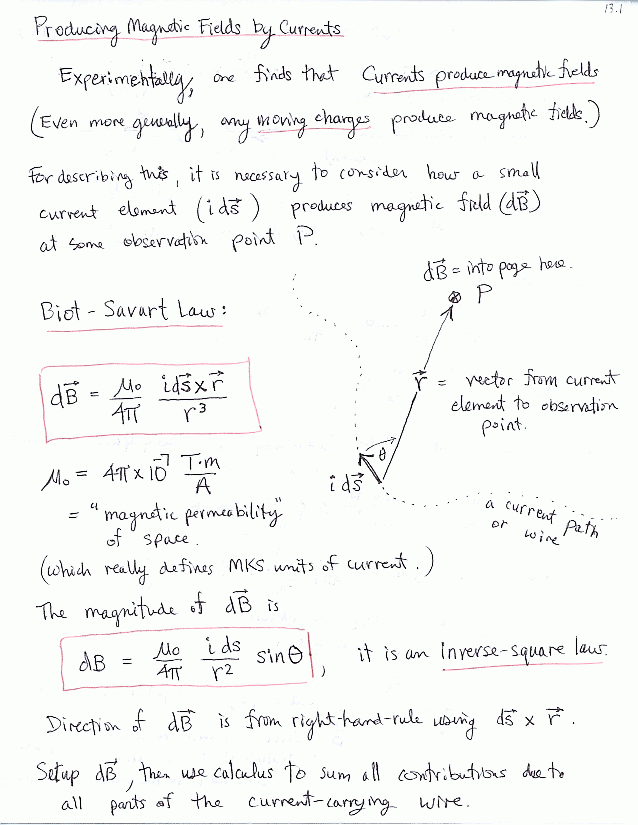 13.1
Producing Magnetic Fields by Currents
Experimentally, one finds that Currents produce magnetic fields
(Even more generally, any moving charges produce magnetic fields.)
For describing this, it is necessary to consider how a small
current element (i ds⃗) produces magnetic field (dB⃗)
at some observation point P.
dB⃗ = into page here.
⊗ P
Biot - Savart Law:
dB⃗ = μ₀/4π i ds⃗ × r⃗ / r³
r⃗ = vector from current
element to observation
point.
θ
i ds⃗
μ₀ = 4π × 10⁻⁷ T·m/A
= "magnetic permeability"
of space.
a current path
or wire
(which really defines MKS units of current.)
The magnitude of dB⃗ is
dB = μ₀/4π i ds/r² sin θ, it is an inverse-square law.
Direction of dB⃗ is from right-hand-rule using ds⃗ × r⃗.
Setup dB⃗, then use calculus to sum all contributions due to
all parts of the current-carrying wire.